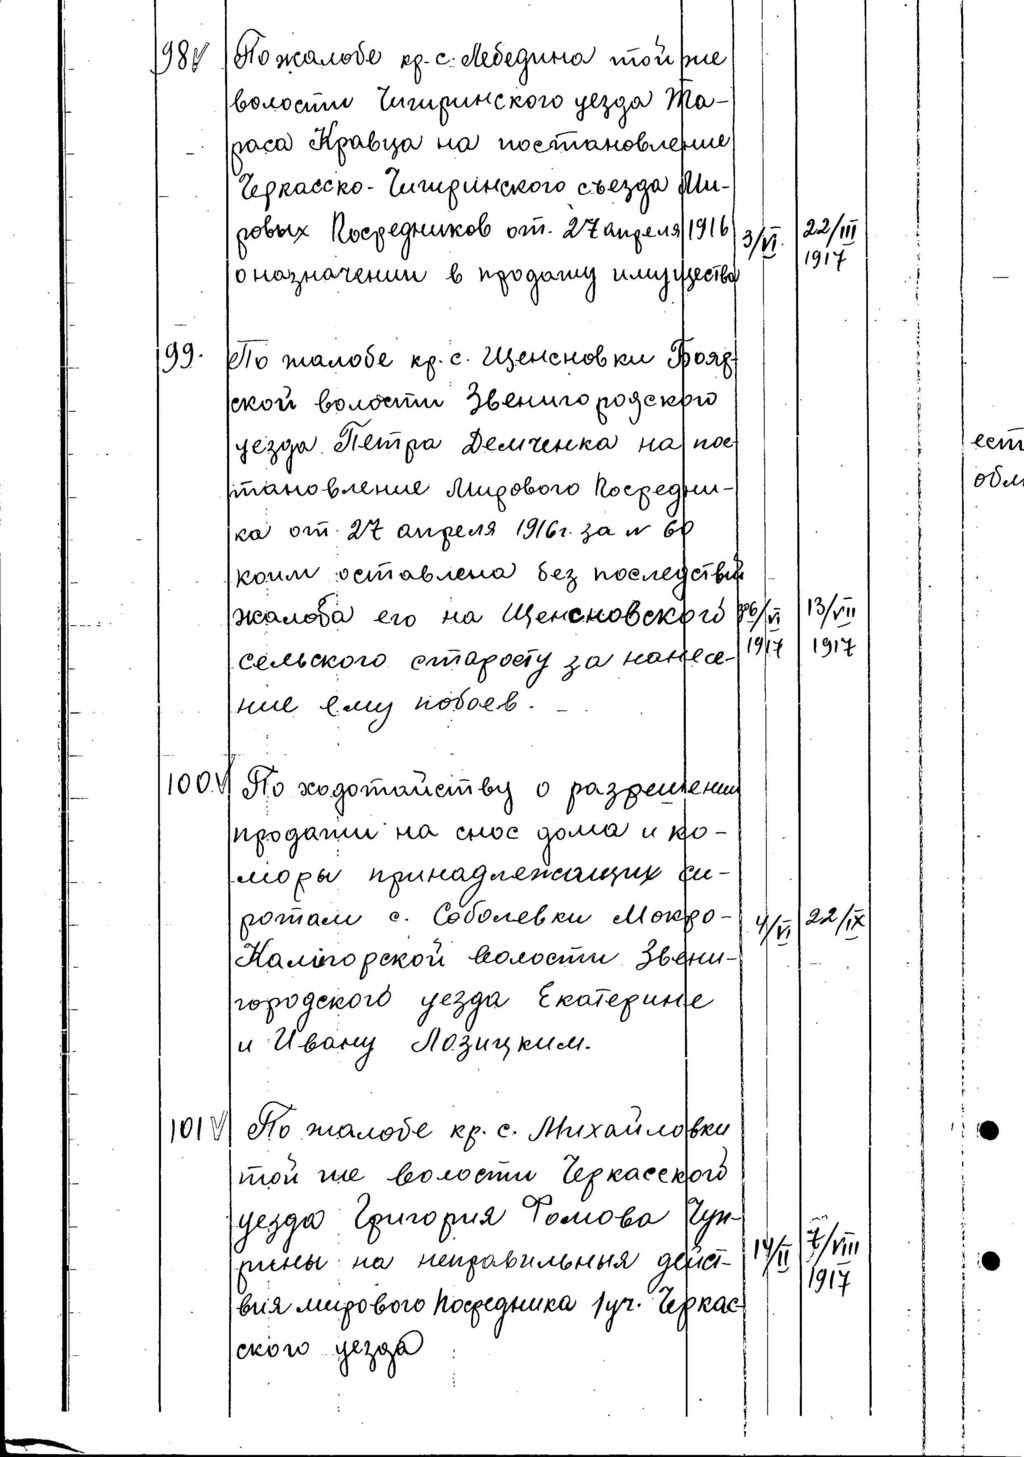 98 По жалобе кр. с. Лебедина той же
волости Чигиринского уезда Та-
раса Кравца на постановление
Черкасско-Чигиринского съезда Ми-
ровых Посредников от 27 апреля 1916 3/VI 22/III
о назначении в продажу имущества 1917
99. По жалобе кр. с. Щенсновки Бояр-
ской волости Звенигородского
уезда Петра Демченка на пос-
тановление Мирового Посредни-
ка от 27 апреля 1916г. за N 60
коим оставлена без последствий
жалоба его на Щенсновского /VI 13/VII
сельского старосту за нанесе- 1917 1917
ние ему побоев.
100. По ходотайству о разрешении
продажи на снос дома и ко-
моры принадлежащих си-
ротам с. Соболевки Мокро- 4/VI 22/IX
Калигорской волости Звени-
городского уезда Екатерине
и Ивану Лозицким.
101 По жалобе кр. с. Михайловки
той же волости Черкасского
уезда Григория Фомова Чуп-
рины на неправильныя дейст- 14/II 7/VIII
вия мирового Посредника 1 уч. Черкас- 1917
ского уезда
ест
обл